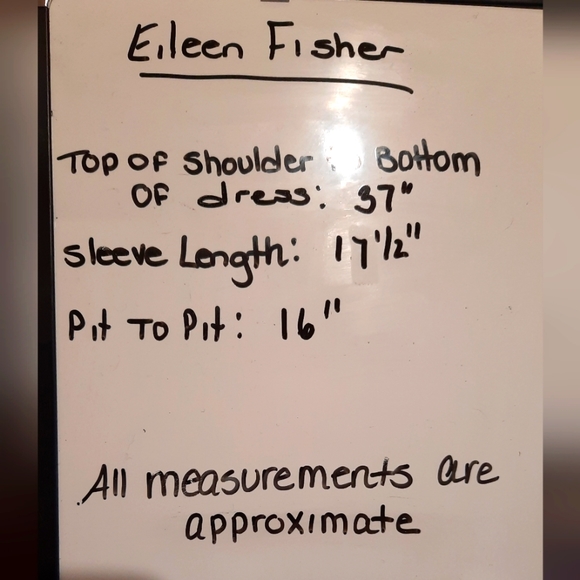 Eileen Fisher
Top of Shoulder Bottom
of dress: 37"
Sleeve Length: 17 1/2"
Pit To Pit: 16"
All measurements are
approximate